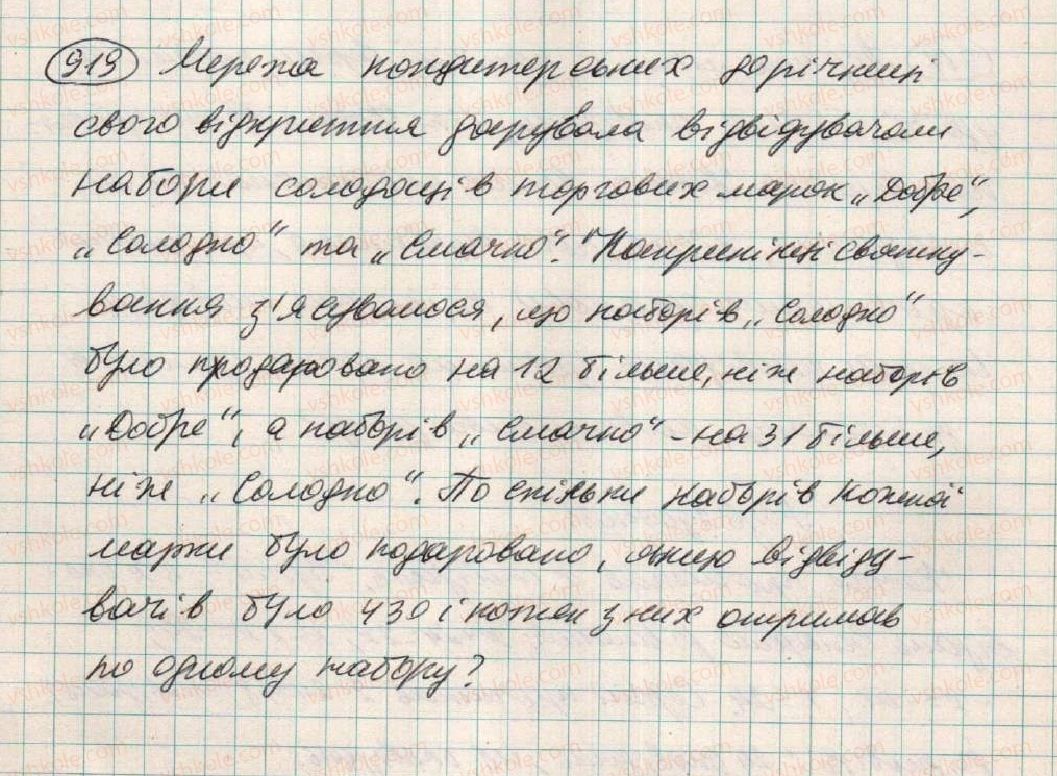 919 Мережа кондитерських до річниці
свого відкриття дарувала відвідувачам
набори солодощів торгових марок „Добре",
„Солодко" та „Смачно". Наприкінці святку-
вання з'ясувалося, що наборів „Солодко"
було продаровано на 12 більше, ніж наборів
„Добре", а наборів „Смачно" - на 31 більше,
ніж „Солодко". По скільки наборів кожної
марки було подаровано, якщо відвіду-
вачів було 430 і кожен з них отримав
по одному набору?